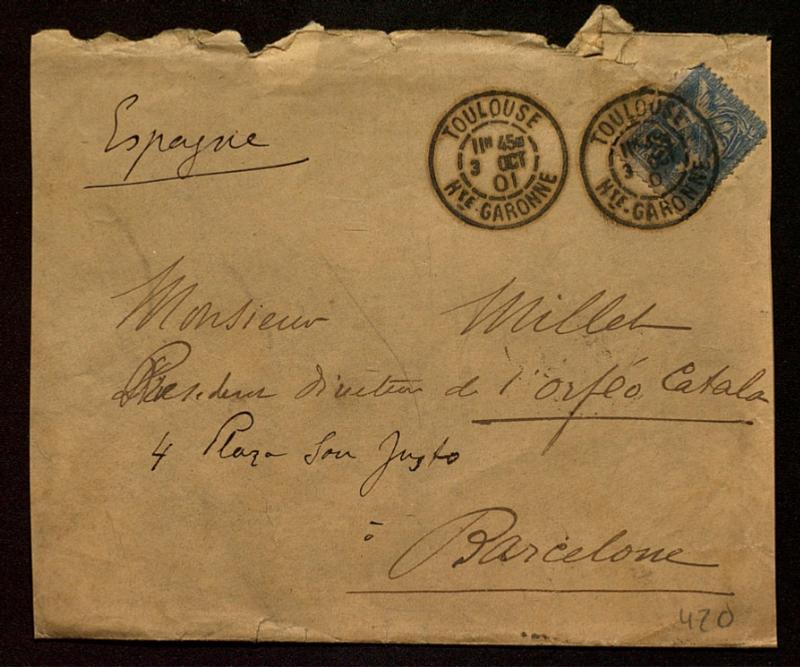 Espagne
TOULOUSE
11H 45M
3 OCT
01
HTE-GARONNE
TOULOUSE
3
0
HTE-GARONNE
Monsieur Millet
Président directeur de l'orféo Catala
4 Plaza San Justo
à Barcelone
420